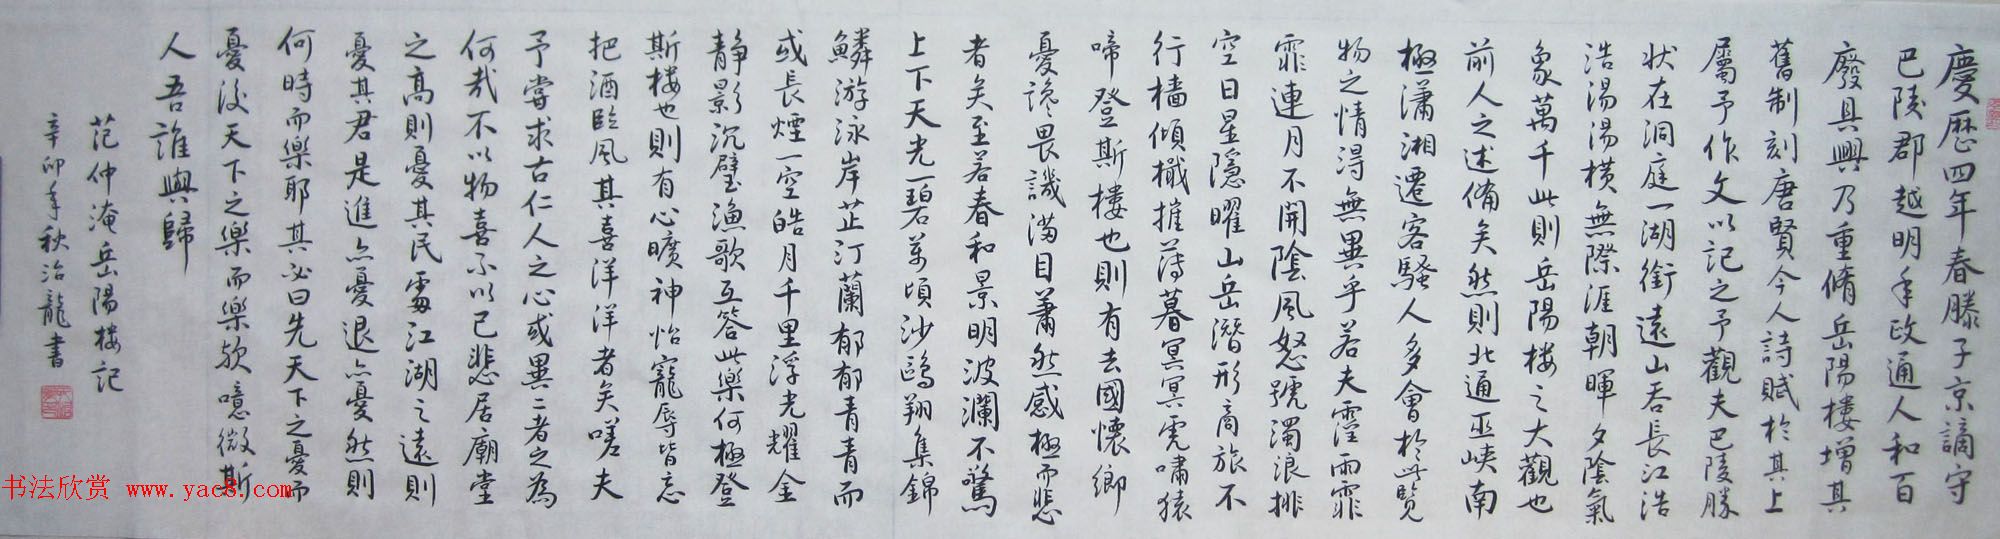 慶歷四年春滕子京謫守
巴陵郡越明年政通人和百
廢具興乃重脩岳陽樓增其
舊制刻唐賢今人詩賦於其上
屬予作文以記之予觀夫巴陵勝
狀在洞庭一湖銜遠山吞長江浩
浩湯湯橫無際涯朝暉夕陰氣
象萬千此則岳陽樓之大觀也
前人之述備矣然則北通巫峽南
極瀟湘遷客騷人多會於此覽
物之情淂無異乎若夫霪雨霏
霏連月不開陰風怒號濁浪排
空日星隱曜山岳潛形商旅不
行檣傾檝摧薄暮冥冥虎嘯猿
啼登斯樓也則有去國懷鄉
憂讒畏譏滿目蕭然感極而悲
者矣至若春和景明波瀾不驚
上下天光一碧萬頃沙鷗翔集錦
鱗游泳岸芷汀蘭郁郁青青而
或長煙一空皓月千里浮光耀金
靜影沉璧漁歌互答此樂何極登
斯樓也則有心曠神怡寵辱皆忘
把酒臨風其喜洋洋者矣嗟夫
予嘗求古仁人之心或異二者之為
何哉不以物喜不以己悲居廟堂
之高則憂其民處江湖之遠則
憂其君是進亦憂退亦憂然則
何時而樂耶其必曰先天下之憂而
憂後天下之樂而樂欤噫微斯
人吾誰與歸
范仲淹岳陽樓記
辛卯年秋治龍書
书法欣赏 www.yac8.com